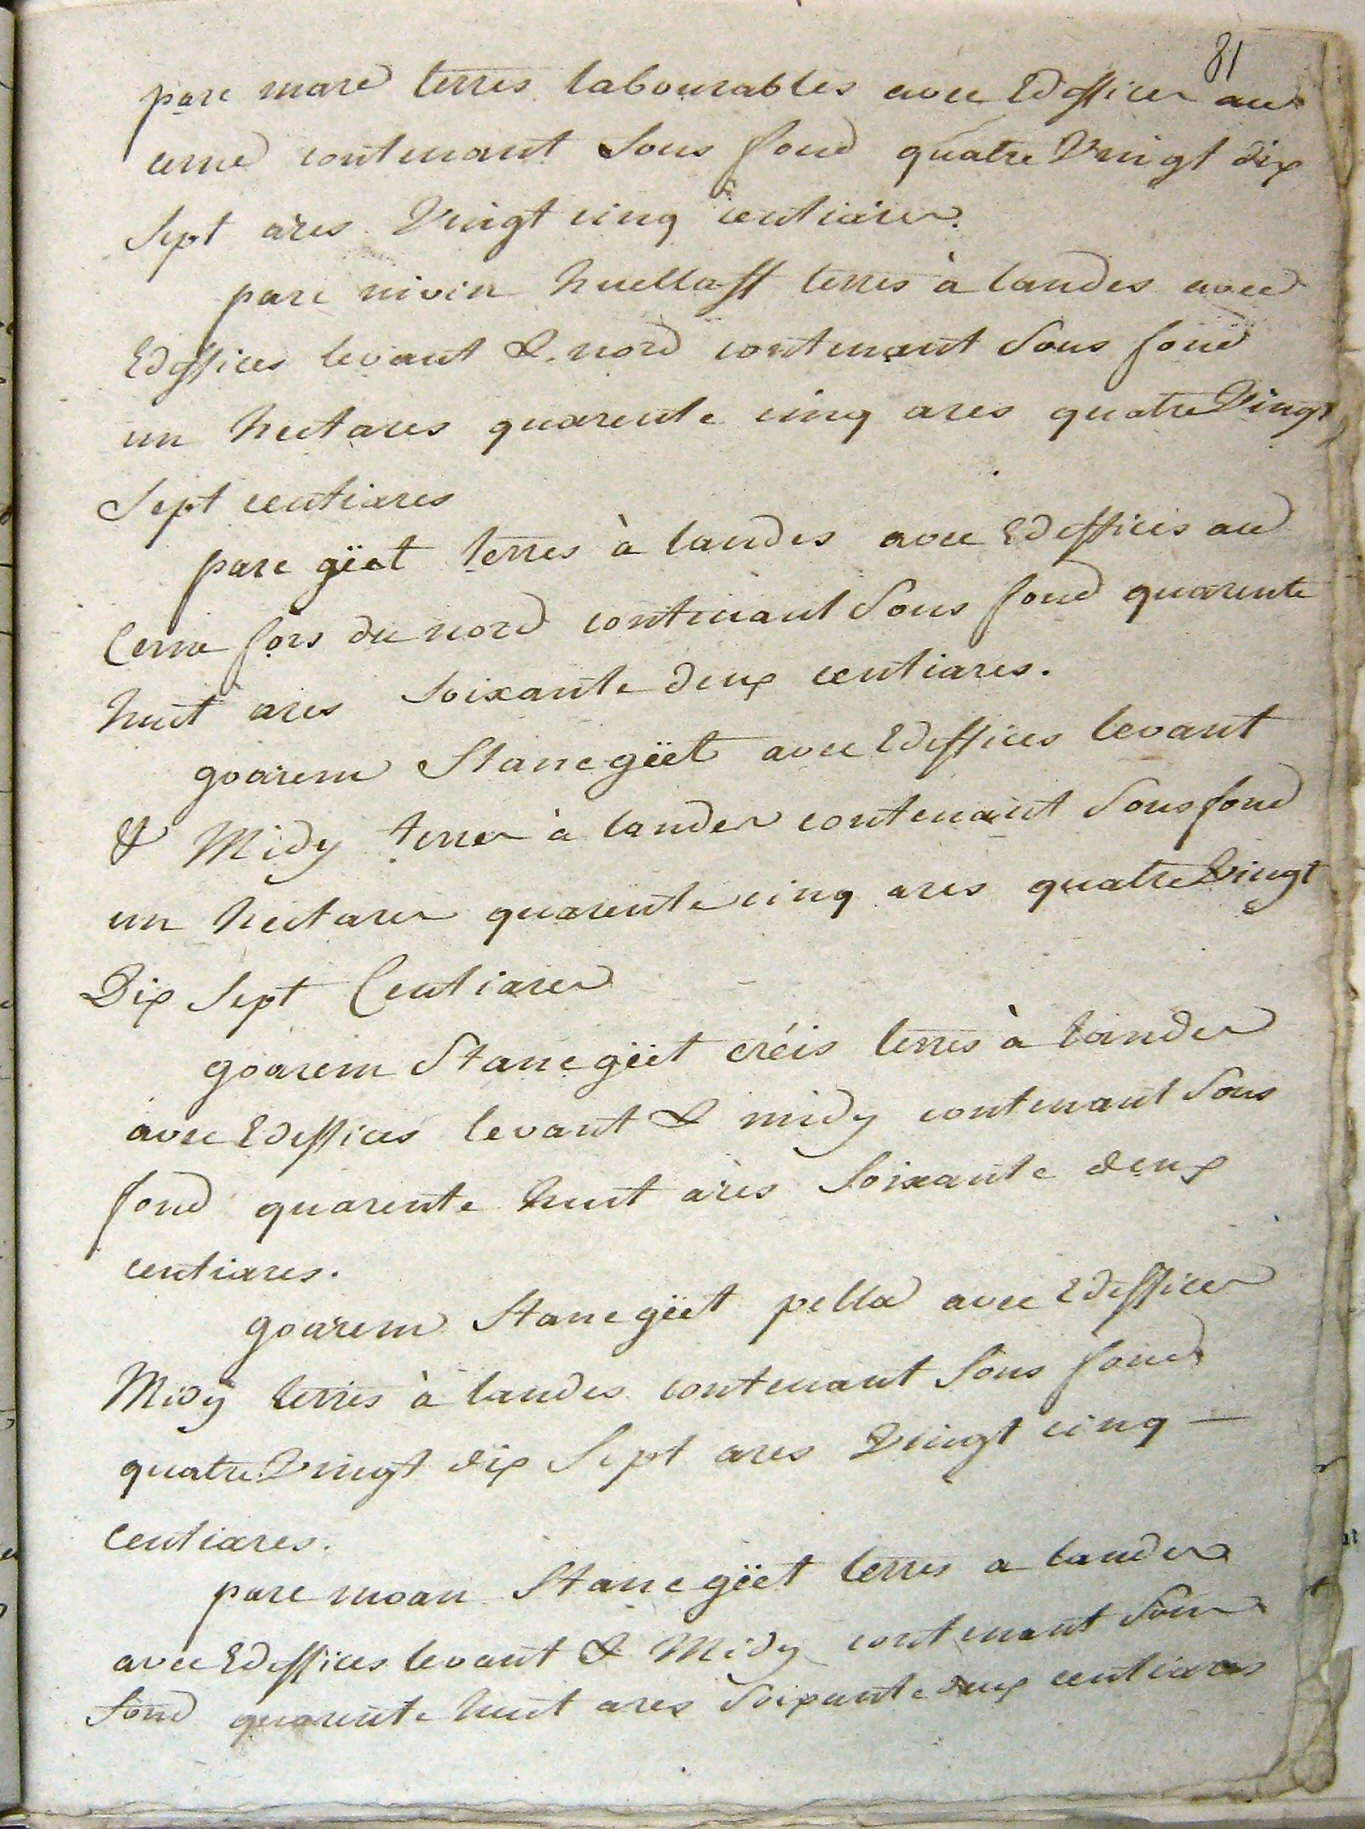 81
parc mare terres labourables avec Edeffices au
cerne contenant Sous fond quatre Vingt dix
Sept ares Vingt cinq centiares.
parc nivin huellaff terres à landes avec
Edeffices levant & nord contenant Sous fond
un hectares quarente cinq ares quatre Vingt
Sept centiares
parc gïet terres à landes avec Edeffices au
Cerne fors du nord contenant Sous fond quarente
huit ares Soixante deux centiares.
goarem Stanc gïet avec Edeffices levant
& Midy terres à landes contenant Sous fond
un hectares quarente cinq ares quatre Vingt
Dix Sept Centiares
goarem Stanc gïet créis terres à landes
avec Edeffices levant & midy contenant Sous
fond quarente huit ares Soixante deux
centiares.
goarem Stanc gïet pella avec Edeffices
Midy terres à landes contenant Sous fond
quatre Vingt dix Sept ares Vingt cinq —
Centiares.
parc moan Stanc gïet terres a landes
avec Edeffices levant & Midy contenant Sous
fond quarente huit ares Soixante deux centiares